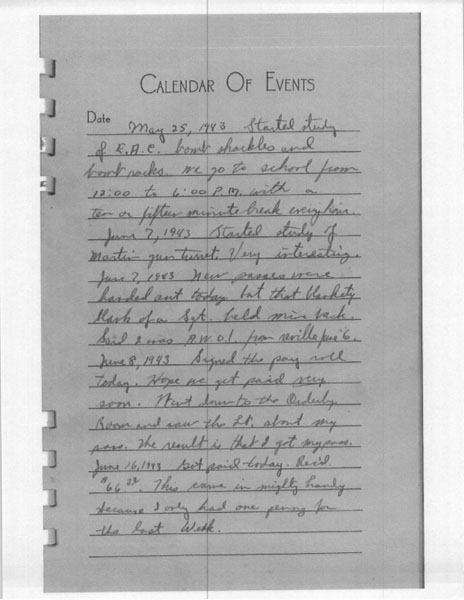 CALENDAR OF EVENTS
Date
May 25, 1943 Started study
of E.A.C. bomb shackles and
bomb racks. We go to school from
12:00 to 6:00 P.M. with a
ten or fifteen minute break every hour.
June 7, 1943 Started study of
Martin gun turret. Very interesting.
June 7, 1943 New passes were
handed out today but that blankety
blank of a Sgt. held mine back.
Said I was A.W.O.L. from reville June 6.
June 8, 1943 Signed the pay roll
today. Hope we get paid very
soon. Went down to the Orderly
Room and saw the Lt. about my
pass. The result is that I got my pass.
June 16, 1943 Got paid today. Rec'd.
$66. This came in mighty handy
because I only had one penny for
the last Week.